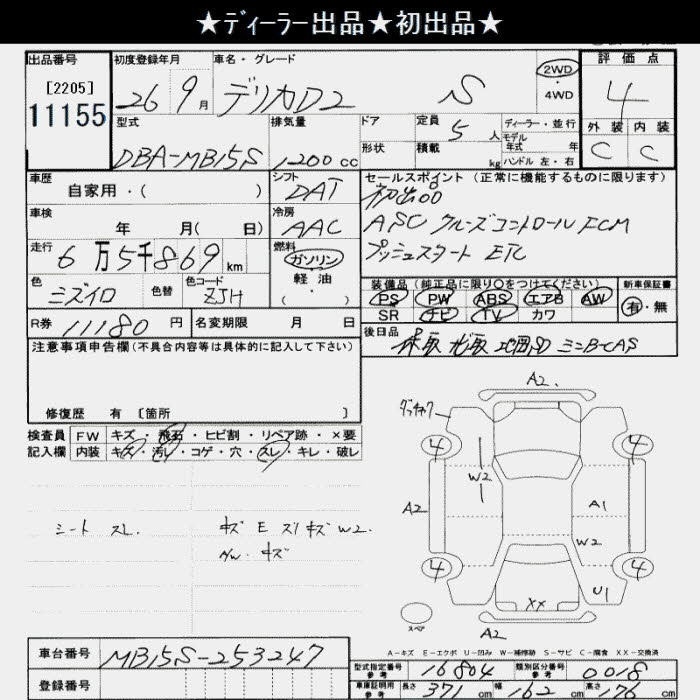 ★ディーラー出品★初出品★
出品番号 初度登録年月 車名・グレード 評価点
[2205] 26 9月 デリカD2 S 2WD ・ 4WD 4
11155
型式 排気量 ドア 定員 5人 ディーラー・並行 外装 内装
DBA-MB15S 1200cc 形状 積載 kg モデル年式 年 C C
ハンドル 左・右
車歴 自家用・( ) シフト DAT セールスポイント (正常に機能するものに限ります)
初出品
車検 年 月( 日) 冷房 AAC ASC クルーズコントロール ECM
走行 6万5千869km 燃料 ガソリン・軽油・( ) プッシュスタート ETC
色 ミズイロ 色替 色コード ZJH 装備品 (純正品に限り○をつけてください) 新車保証書
PS PW ABS エアB AW 有・無
SR ナビ TV カワ
R券 11180円 名変期限 月 日 後日品
注意事項申告欄 (不具合内容等は具体的に記入して下さい) 保取 ナビ取 地図SD ミニB-CAS
修復歴 有 [箇所 ]
検査員 FW キズ・飛石・ヒビ割・リペア跡・×要
記入欄 内装 キズ・汚レ・コゲ・穴・スレ・キレ・破レ
シート スレ キズ E スリキズ W2.
AW. キズ
A2
4 4
W2
A2 A1 A2
W2
4 4
U1
XX
スペア
A2
A-キズ E-エクボ U-凹み W-補修跡 S-サビ C-腐食 XX-交換済
車台番号 MB15S-253247
型式指定番号 参考 16804 類別区分番号 参考 0018
登録番号
車庫証明用 参考 長さ 371cm 幅 162cm 高さ 176cm